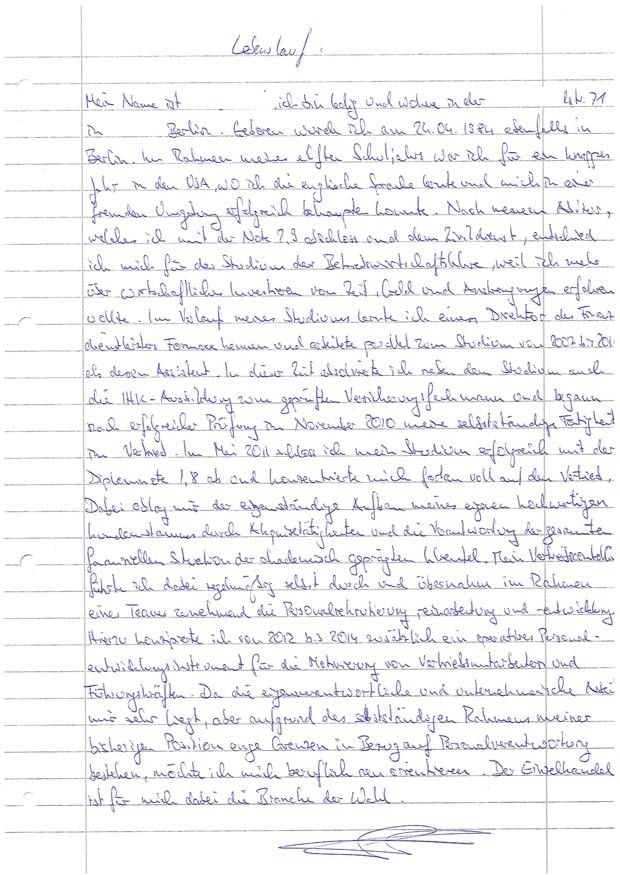 Lebenslauf.
Mein Name ist ich bin ledig und wohne in der Str. 71
in Berlin. Geboren wurde ich am 24.04.1984 ebenfalls in
Berlin. Im Rahmen meines elften Schuljahrs war ich für ein knappes
Jahr in den USA, wo ich die englische Sprache lernte und mich in einer
fremden Umgebung erfolgreich behaupten konnte. Nach meinem Abitur,
welches ich mit der Note 2,9 abschloss und dem Zivildienst, entschied
ich mich für das Studium der Betriebswirtschaftslehre, weil ich mehr
über wirtschaftliches Investieren von Zeit, Geld und Anstrengungen erfahren
wollte. Im Verlauf meines Studiums lernte ich einen Direktor des Finanz
dienstleisters kennen und arbeitete parallel zum Studium von 2007 bis 2011
als dessen Assistent. In dieser Zeit absolvierte ich neben dem Studium auch
die IHK-Ausbildung zum geprüften Versicherungsfachmann und begann
nach erfolgreicher Prüfung im November 2010 meine selbstständige Tätigkeit
im Vertrieb. Im Mai 2011 schloss ich mein Studium erfolgreich mit der
Diplomnote 1,8 ab und konzentrierte mich fortan voll auf den Vertrieb.
Dabei oblag mir der eigenständige Aufbau meines eigenen hochwertigen
Kundenstamms durch Akquisetätigkeiten und die Verantwortung der gesamten
finanziellen Situation der akademisch geprägten Klientel. Mein
führte ich dabei regelmäßig selbst durch und übernahm im Rahmen
eines Teams zunehmend die Personalrekrutierung, -einarbeitung und -entwicklung.
Hierzu konzipierte ich von 2012 bis 2014 zusätzlich ein operatives Personal-
entwicklungsinstrument für die Motivierung von Vertriebsmitarbeitern und
Führungskräften. Da die eigenverantwortliche und unternehmerische
mir sehr liegt, aber aufgrund des selbstständigen Rahmens meiner
bisherigen Position enge Grenzen in Bezug auf Personalverantwortung
bestehen, möchte ich mich beruflich neu orientieren. Der Einzelhandel
ist für mich dabei die Branche der Wahl.